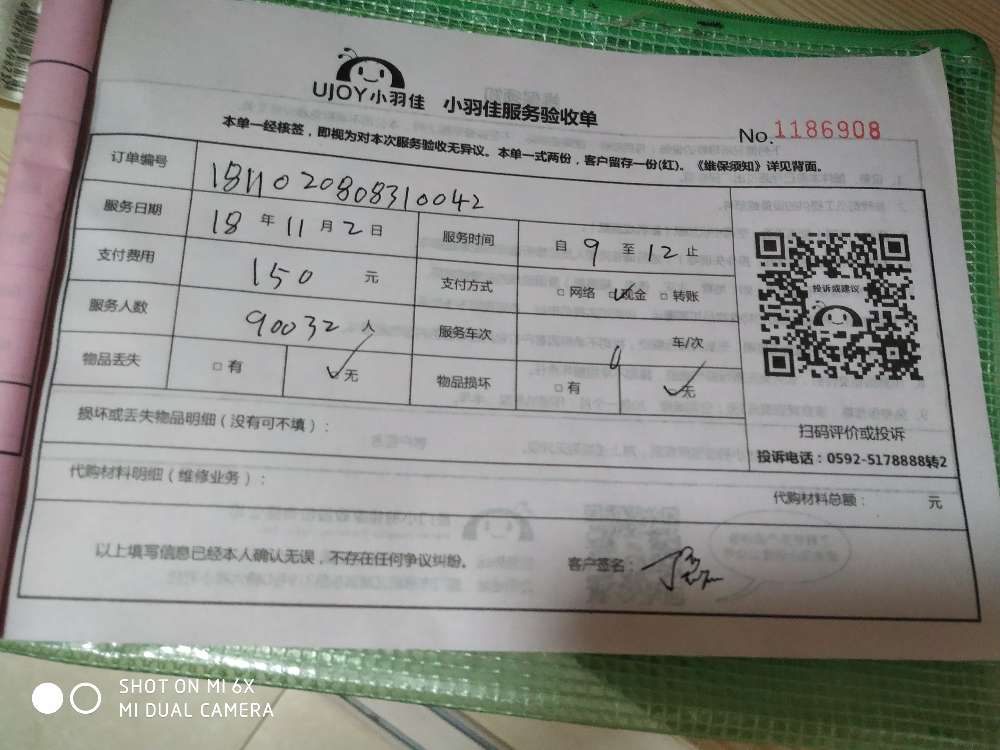 UJOY小羽佳 小羽佳服务验收单
No.1186908
本单一经核签，即视为对本次服务验收无异议。本单一式两份，客户留存一份(红)。《维保须知》详见背面。
订单编号 1811020808310042
服务日期 18 年 11 月 2 日 服务时间 自 9 至 12 止
支付费用 150 元 支付方式 □网络 ☑现金 □转账
服务人数 90032 人 服务车次 0 车/次
物品丢失 □有 ☑无 物品损坏 □有 ☑无
投诉或建议
扫码评价或投诉
投诉电话：0592-5178888转2
损坏或丢失物品明细（没有可不填）：
代购材料明细（维修业务）： 代购材料总额： 元
以上填写信息已经本人确认无误，不存在任何争议纠纷。 客户签名：
SHOT ON MI 6X
MI DUAL CAMERA